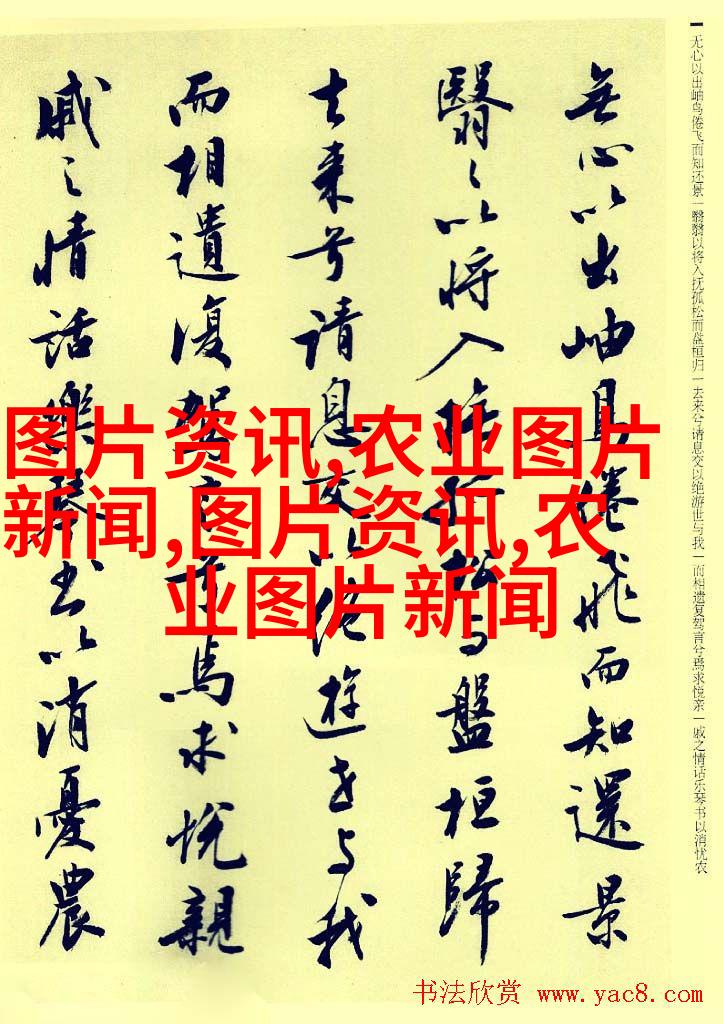 无心以出岫鸟倦飞而知还景|翳翳以将入抚孤松而盘桓归|去来兮请息交以绝游世与我|而相遗复驾言兮焉求悦亲|戚之情话乐琴书以消忧农
無心以出岫鳥倦飛而知還景
翳々以将入撫孤松而盤桓歸
去来兮请息交以绝遊世与我
而相遺復駕言兮焉求悦親
戚之情話樂琴書以消憂農
图片资讯,农业图片
新闻,图片资讯,农
业图片新闻
书法欣赏 www.yac8.com